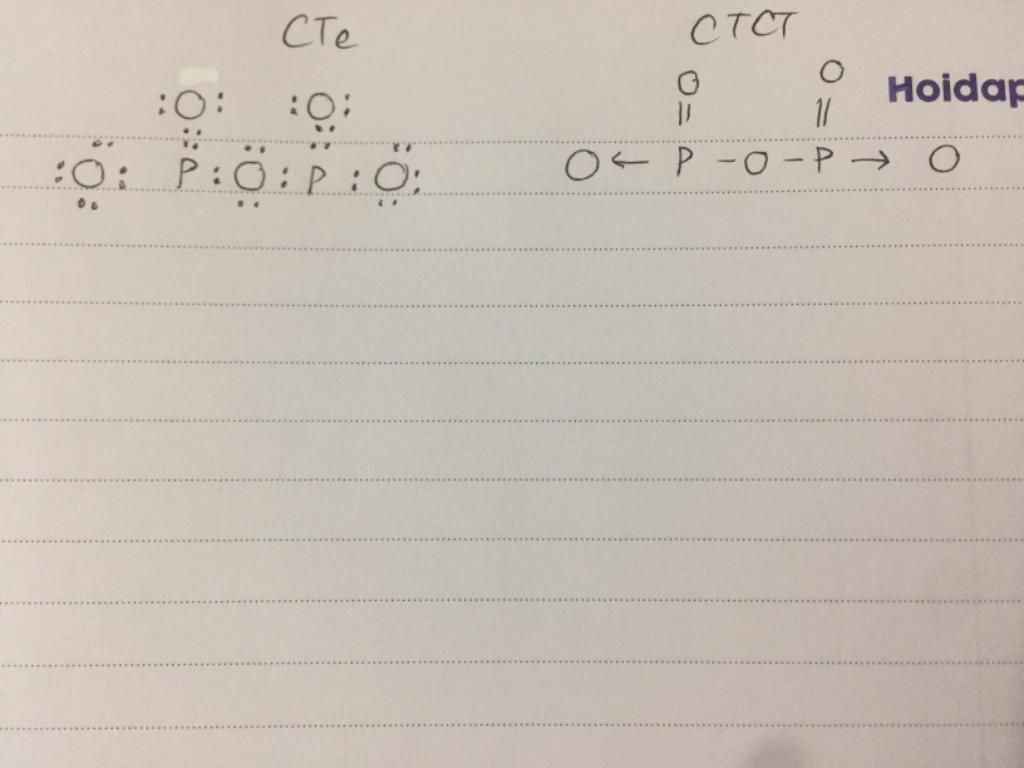 CTe CTCT
:O: :O: O O Hoidap
:O: P:O:P:O: O←P-O-P→O